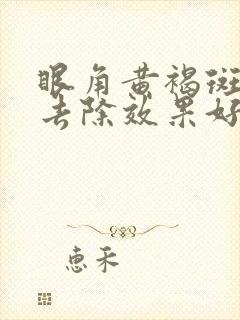 眼角黄褐斑
去除效果好
惠禾